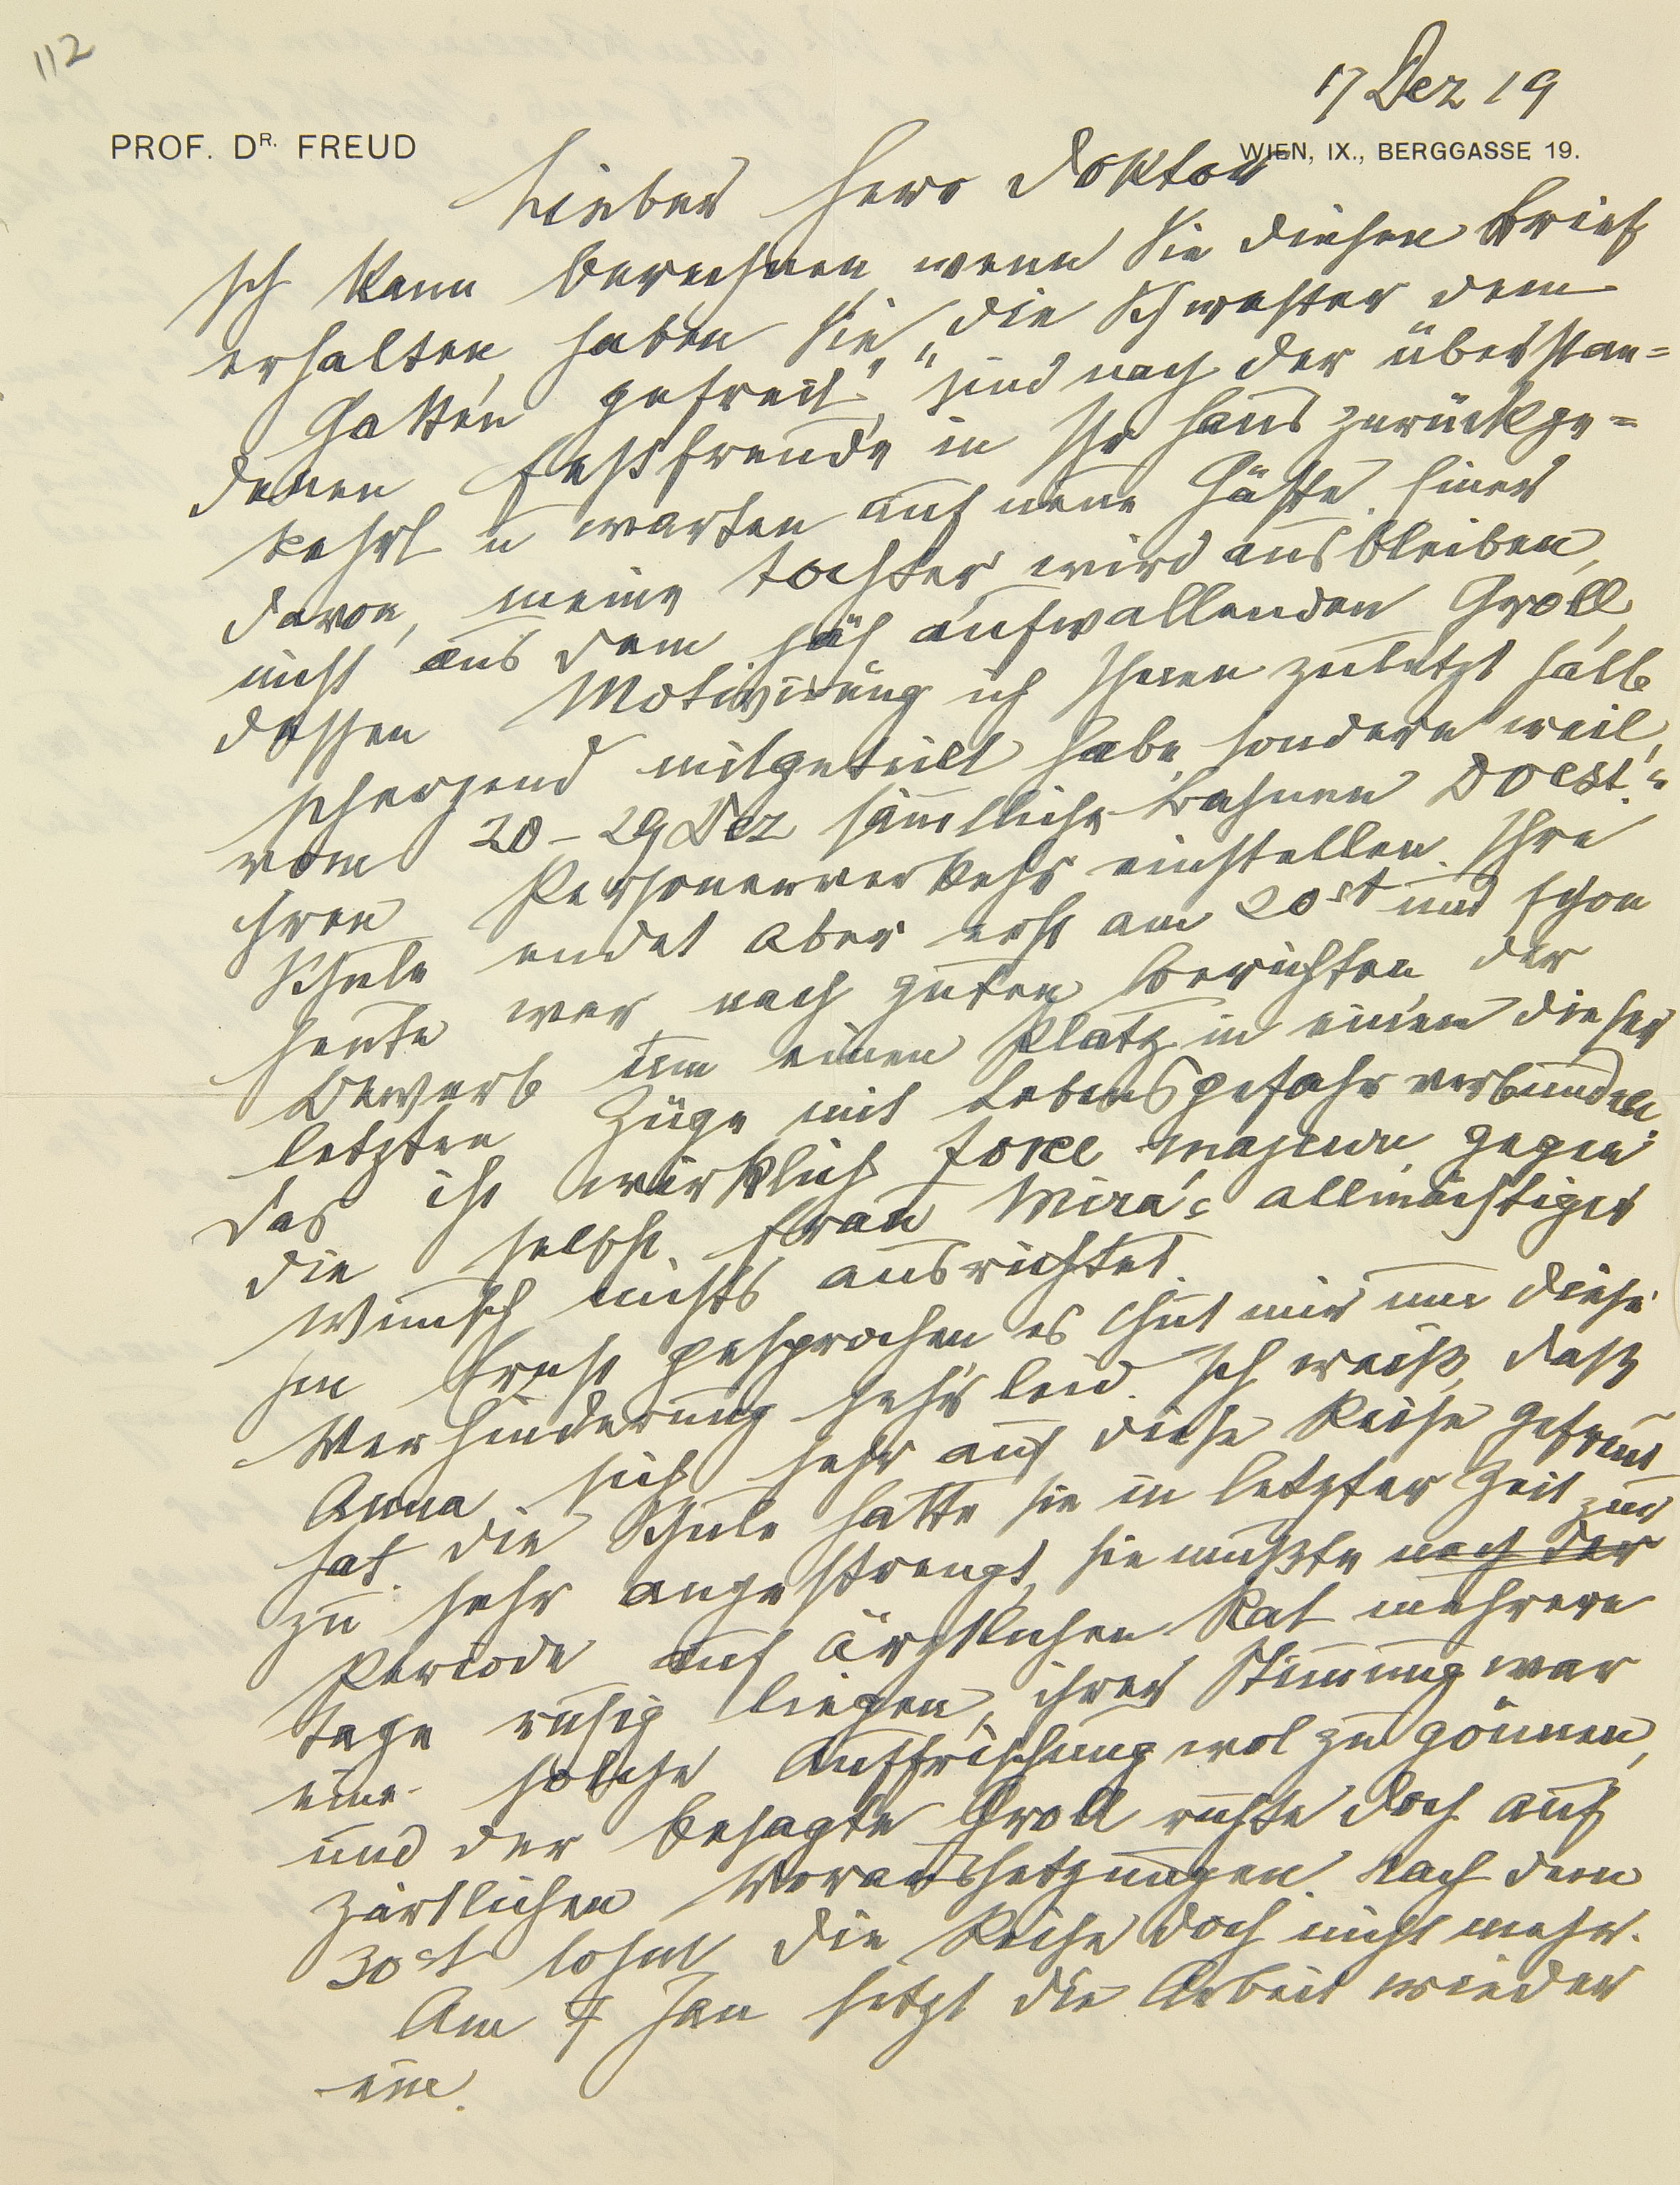 112
17 Dez 19
PROF. DR. FREUD
WIEN, IX., BERGGASSE 19.
Lieber Herr Doktor
Ich kann berechnen, wenn Sie diesen Brief
erhalten, haben Sie „die Schwester dem
Gatten gefreit“, sind nach der überstan-
denen Festfreude in Ihr Haus zurückge-
kehrt u warten auf neue Gäste. Einer
davon, meine Tochter wird ausbleiben,
nicht aus dem jäh aufwallenden Groll,
dessen Motivirung ich Ihnen zuletzt halb
scherzend mitgeteilt habe, sondern weil,
vom 20 – 29 Dez sämmtliche Bahnen DOest.'s
ihren Personenverkehr einstellen. Ihre
Schule endet aber erst am 20st und schon
heute war nach guten Berichten der
Bewerb um einen Platz in einem dieser
letzten Züge mit Lebensgefahr verbunden.
Das ist wirklich force majeure, gegen
die selbst Frau Mira's allmächtiger
Wunsch nichts ausrichtet.
Im Ernst gesprochen es thut mir um diese
Verhinderung sehr leid. Ich weiß, daß
Anna sich sehr auf diese Reise gefreut
hat. Die Schule hatte sie in letzter Zeit zur
zu sehr angestrengt, sie mußte nach der
Periode auf ärztlichen Rat mehrere
Tage ruhig liegen, ihrer Stimmung war
eine solche Auffrischung wol zu gönnen,
und der besagte Groll ruhte doch auf
zärtlichen Voraussetzungen. Nach dem
30st lohnt die Reise doch nicht mehr.
Am 7 Jan setzt die Arbeit wieder
ein.